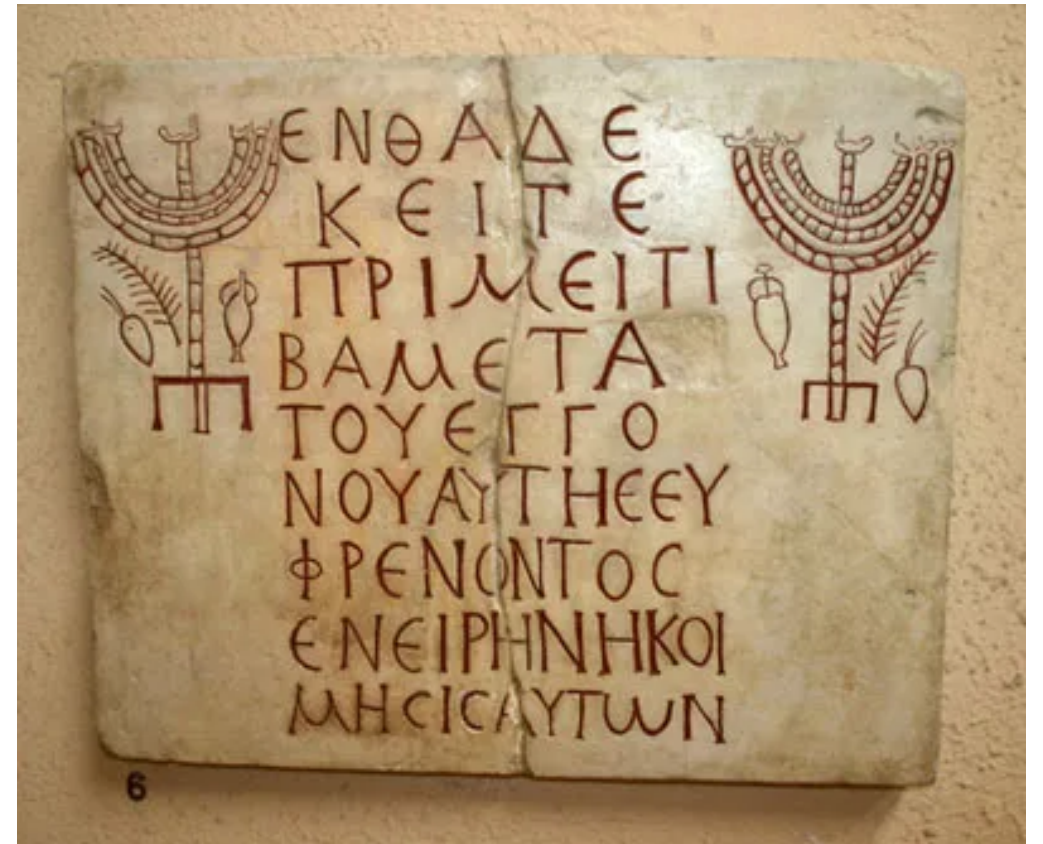 ΕΝΘΑΔΕ
ΚΕΙΤΕ
ΠΡΙΜΕΙΤΙ
ΒΑΜΕΤΑ
ΤΟΥΕΓΓΟ
ΝΟΥΑΥΤΗϹΕΥ
ΦΡΕΝΟΝΤΟϹ
ΕΝΕΙΡΗΝΗΚΟΙ
ΜΗϹΙϹΑΥΤΩΝ
6